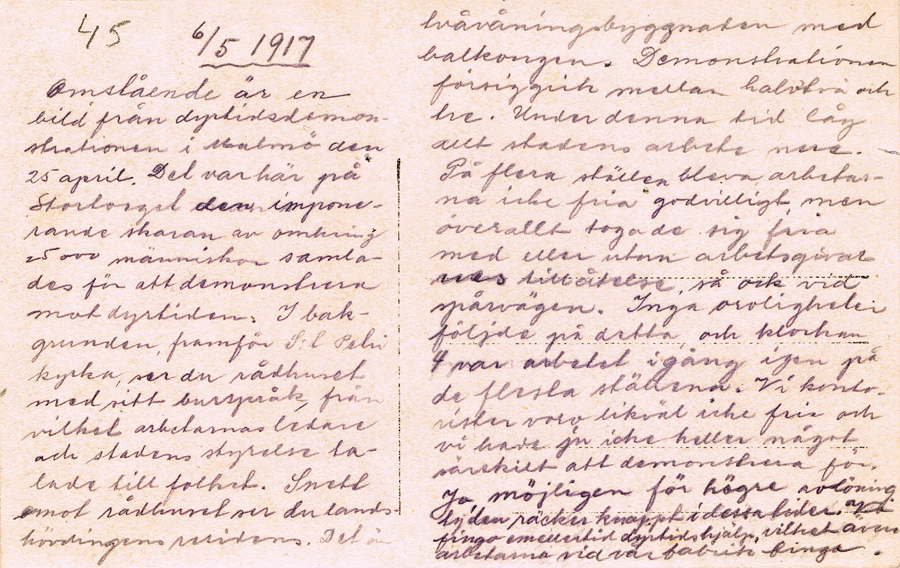 45
6/5 1917
Omstående är en
bild från dyrtidsdemon-
strationen i Malmö den
25 april. Det var här på
Stortorget den impone-
rande skaran av omkring
25 000 människor samla-
des för att demonstrera
mot dyrtiden. I bak-
grunden, framför S:t Petri
kyrka, ser du rådhuset
med sitt burspråk, från
vilket arbetarnas ledare
och stadens styrelse ta-
lade till folket. Snett
emot rådhuset ser du lands-
hövdingens residens. Det är
tvåvåningsbyggnaden med
balkongen. Demonstrationen
försiggick mellan halvtvå och
tre. Under denna tid låg
allt stadens arbete nere.
På flera ställen bleva arbetar-
na icke fria godvilligt, men
överallt togo de sig fria
med eller utan arbetsgivar-
nes tillåtelse, så ock vid
spårvägen. Inga oroligheter
följde på detta, och klockan
4 var arbetet igång igen på
de flesta ställena. Vi konto-
rister voro likväl icke fria och
vi hade ju icke heller något
särskilt att demonstrera för.
Jo, möjligen för högre avlöning
ty den räcker knappt i dessa tider. Vi
fingo emellertid dyrtidshjälp, vilket även
arbetarna vid vår fabrik fingo.